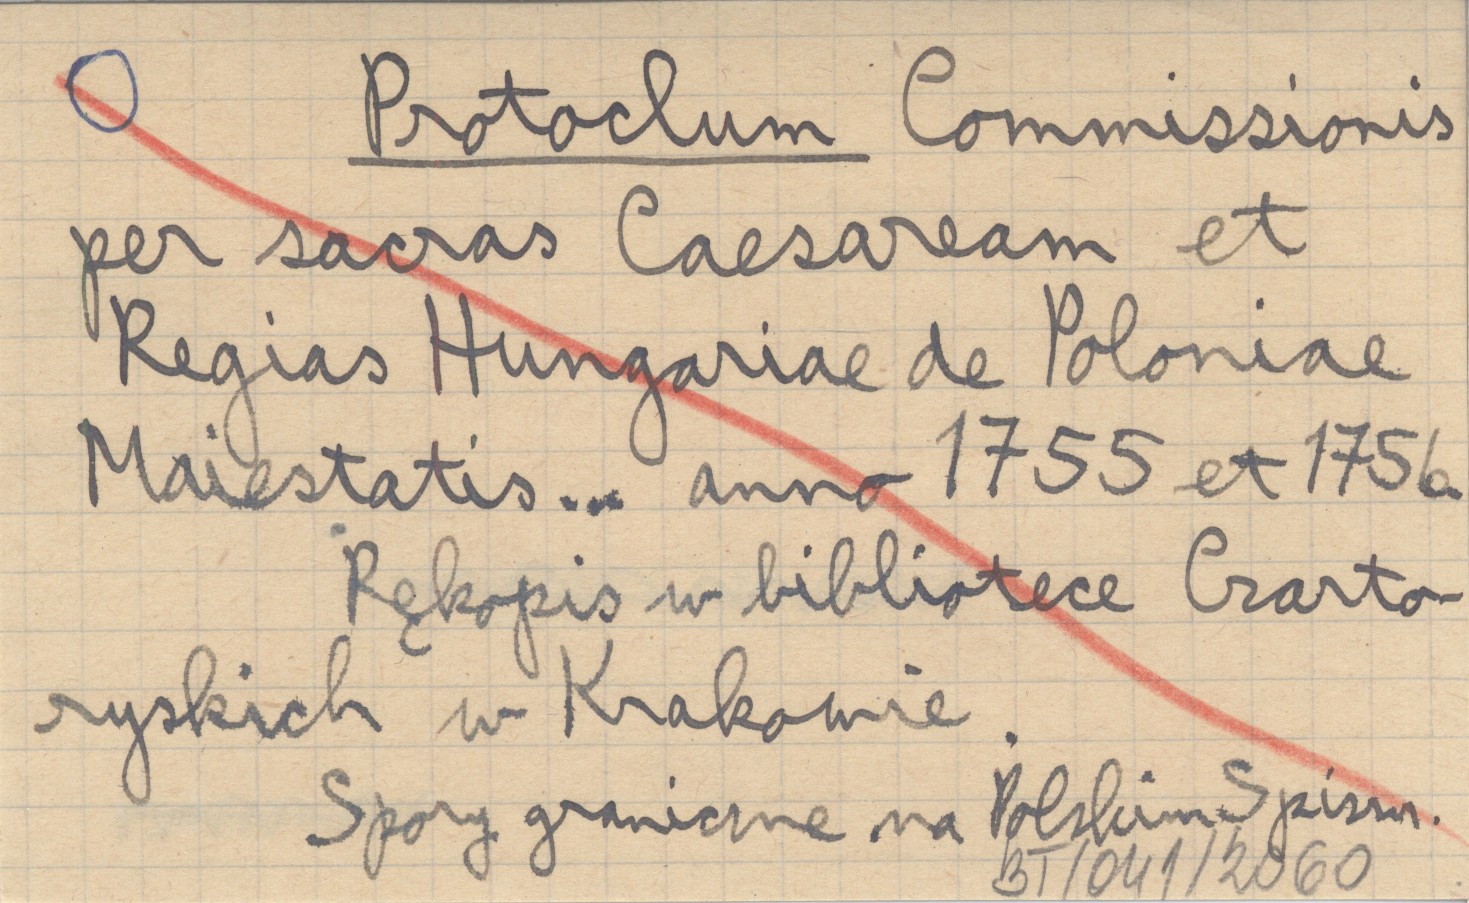 Protoclum Commissionis
per sacras Caesaream et
Regias Hungariae de Poloniae
Maiestatis... anno 1755 et 1756.
Rękopis w bibliotece Czarto-
ryskich w Krakowie.
Spory graniczne na Polskim Spiszu.
BT/041/2060